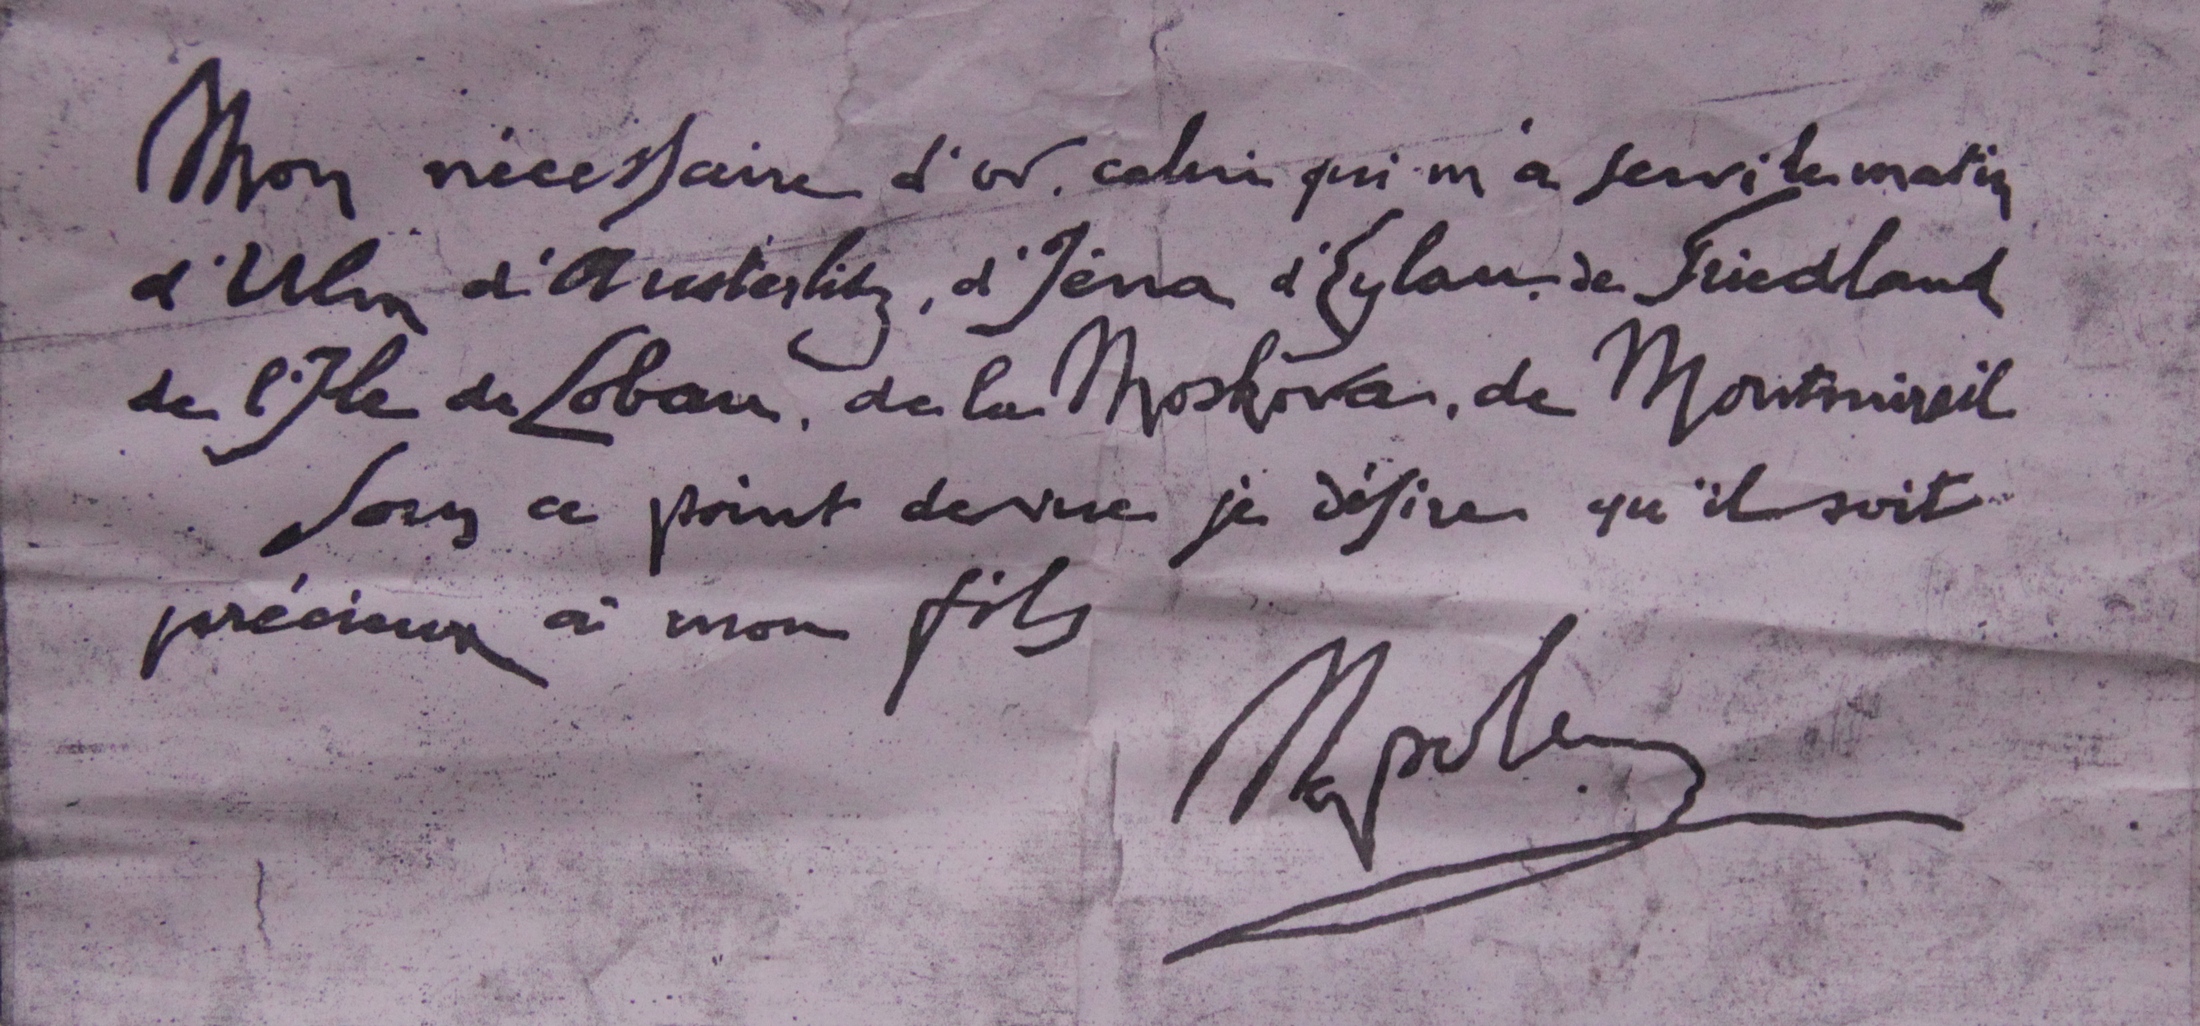 Mon nécessaire d'or, celui qui m'a servi le matin
d'Ulm d'Austerlitz, d'Jéna d'Eylau, de Friedland
de l'Ile de Lobau, de la Moskova, de Montmireil
Sous ce point de vue je désire qu'il soit
précieux à mon fils
Napole